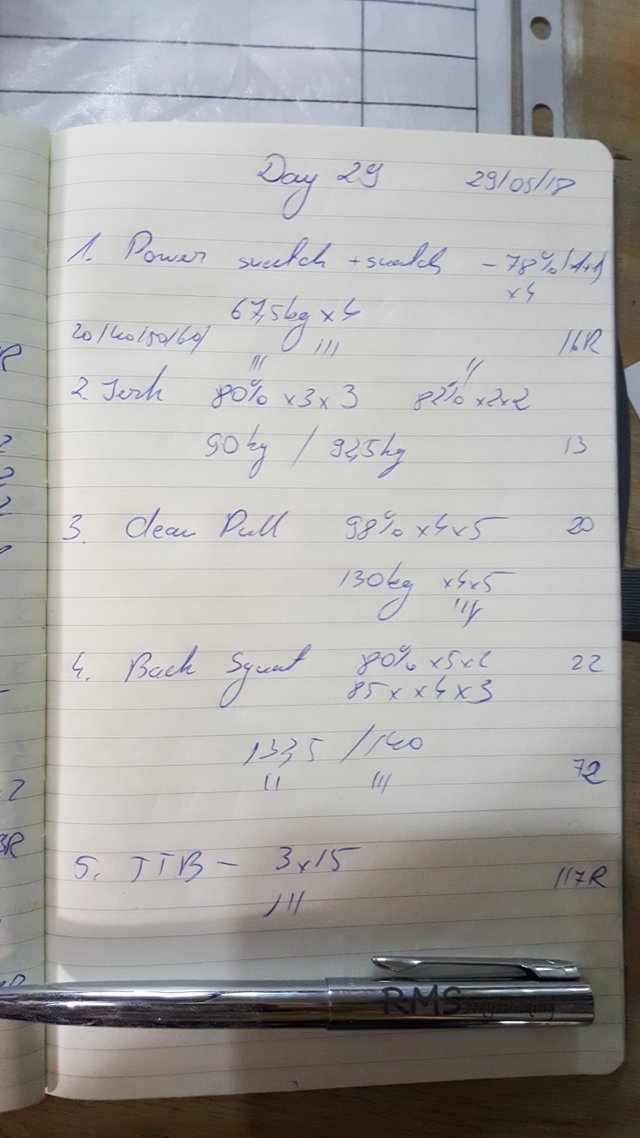 Day 29 29/05/18
1. Power snatch + snatch - 78% (1+1)
x4
67,5kg x 4
20/40/50/60/ 16R
2. Jerk 80% x3x3 82% x2x2
90kg / 92,5kg 13
3. Clean Pull 98% x4x5 20
130kg x4x5
4. Back Squat 80% x5x2 22
85x x4x3
132,5 / 140
72
5. TTB - 3x15
117R
RMS